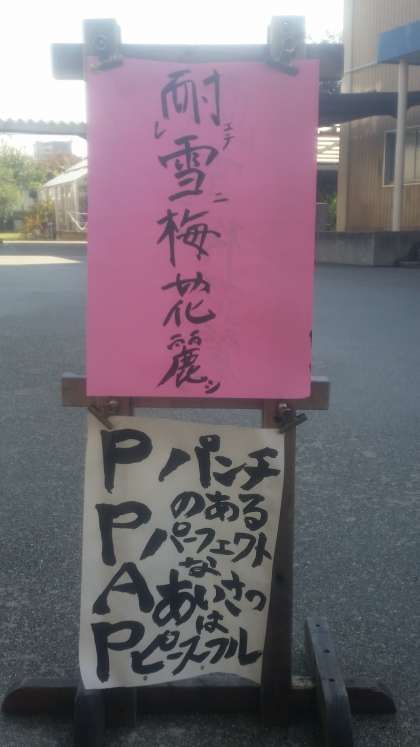 耐レ雪ニ梅花麗シ
エテ
P パンチ
のある
P パーフェクト
な
A あいさつ
は
P ピースフル